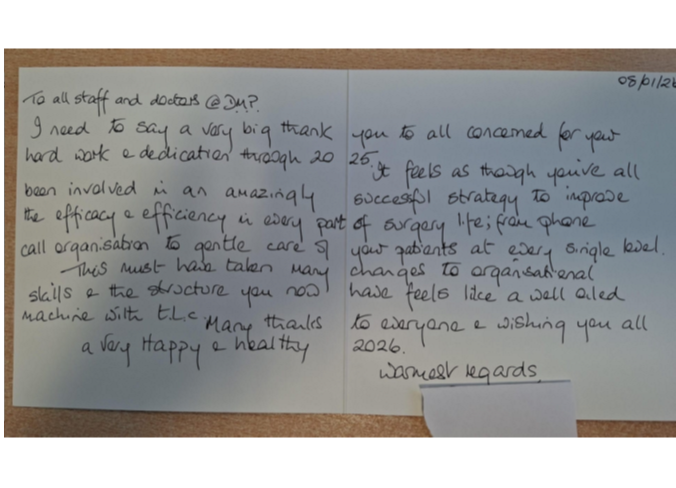 08/01/26
To all staff and doctors @ DMP.
I need to say a very big thank you to all concerned for your
hard work & dedication through 2025.
It feels as though you've all
been involved in an amazingly successful strategy to improve
the efficacy & efficiency in every part of surgery life; from phone
call organisation to gentle care of your patients at every single level.
This must have taken many changes to organisational
skills & the structure you now have feels like a well oiled
machine with t.l.c. Many thanks to everyone & wishing you all
a very Happy & healthy 2026.
Warmest regards,